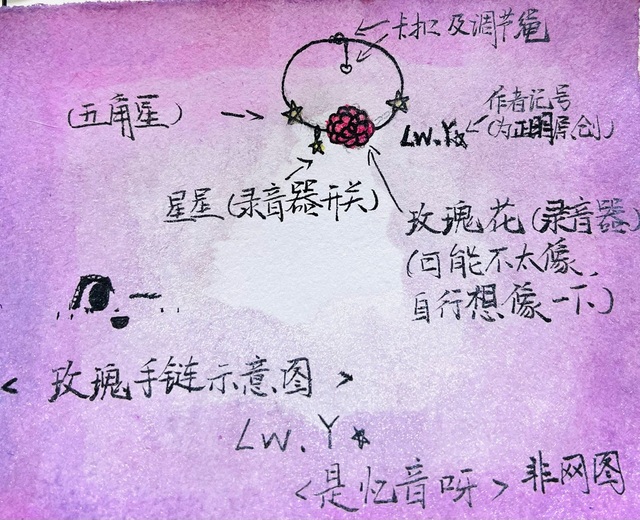 卡扣及调节绳
(五角星)
作者记号
LW.Y (为正明原创)
星星(录音器开关)
玫瑰花(录音器)
(可能不太像,
自行想像一下)
< 玫瑰手链示意图 >
LW.Y
<是忆音呀> 非网图